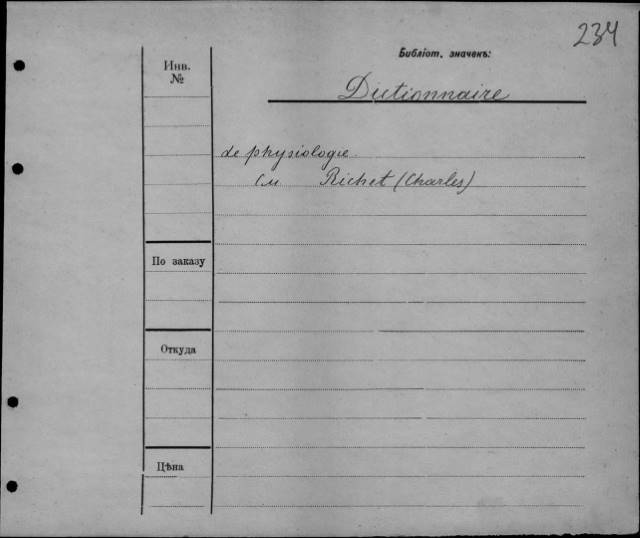 234
Библіот. значекъ:
Инв.
№
Dictionnaire
de physiologie
См Richet (Charles)
По заказу
Откуда
Цѣна